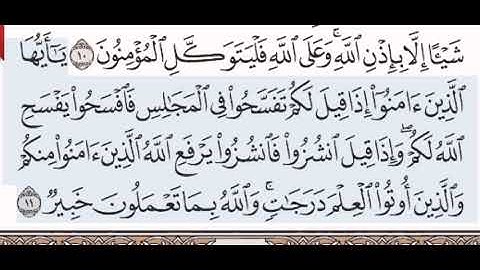 شَيْـًٔا إِلَّا بِإِذْنِ ٱللَّهِ ۚ وَعَلَى ٱللَّهِ فَلْيَتَوَكَّلِ ٱلْمُؤْمِنُونَ ١٠ يَـٰٓأَيُّهَا
ٱلَّذِينَ ءَامَنُوٓا۟ إِذَا قِيلَ لَكُمْ تَفَسَّحُوا۟ فِى ٱلْمَجَـٰلِسِ فَٱفْسَحُوا۟ يَفْسَحِ
ٱللَّهُ لَكُمْ ۖ وَإِذَا قِيلَ ٱنشُزُوا۟ فَٱنشُزُوا۟ يَرْفَعِ ٱللَّهُ ٱلَّذِينَ ءَامَنُوا۟ مِنكُمْ
وَٱلَّذِينَ أُوتُوا۟ ٱلْعِلْمَ دَرَجَـٰتٍ ۚ وَٱللَّهُ بِمَا تَعْمَلُونَ خَبِيرٌ ١١